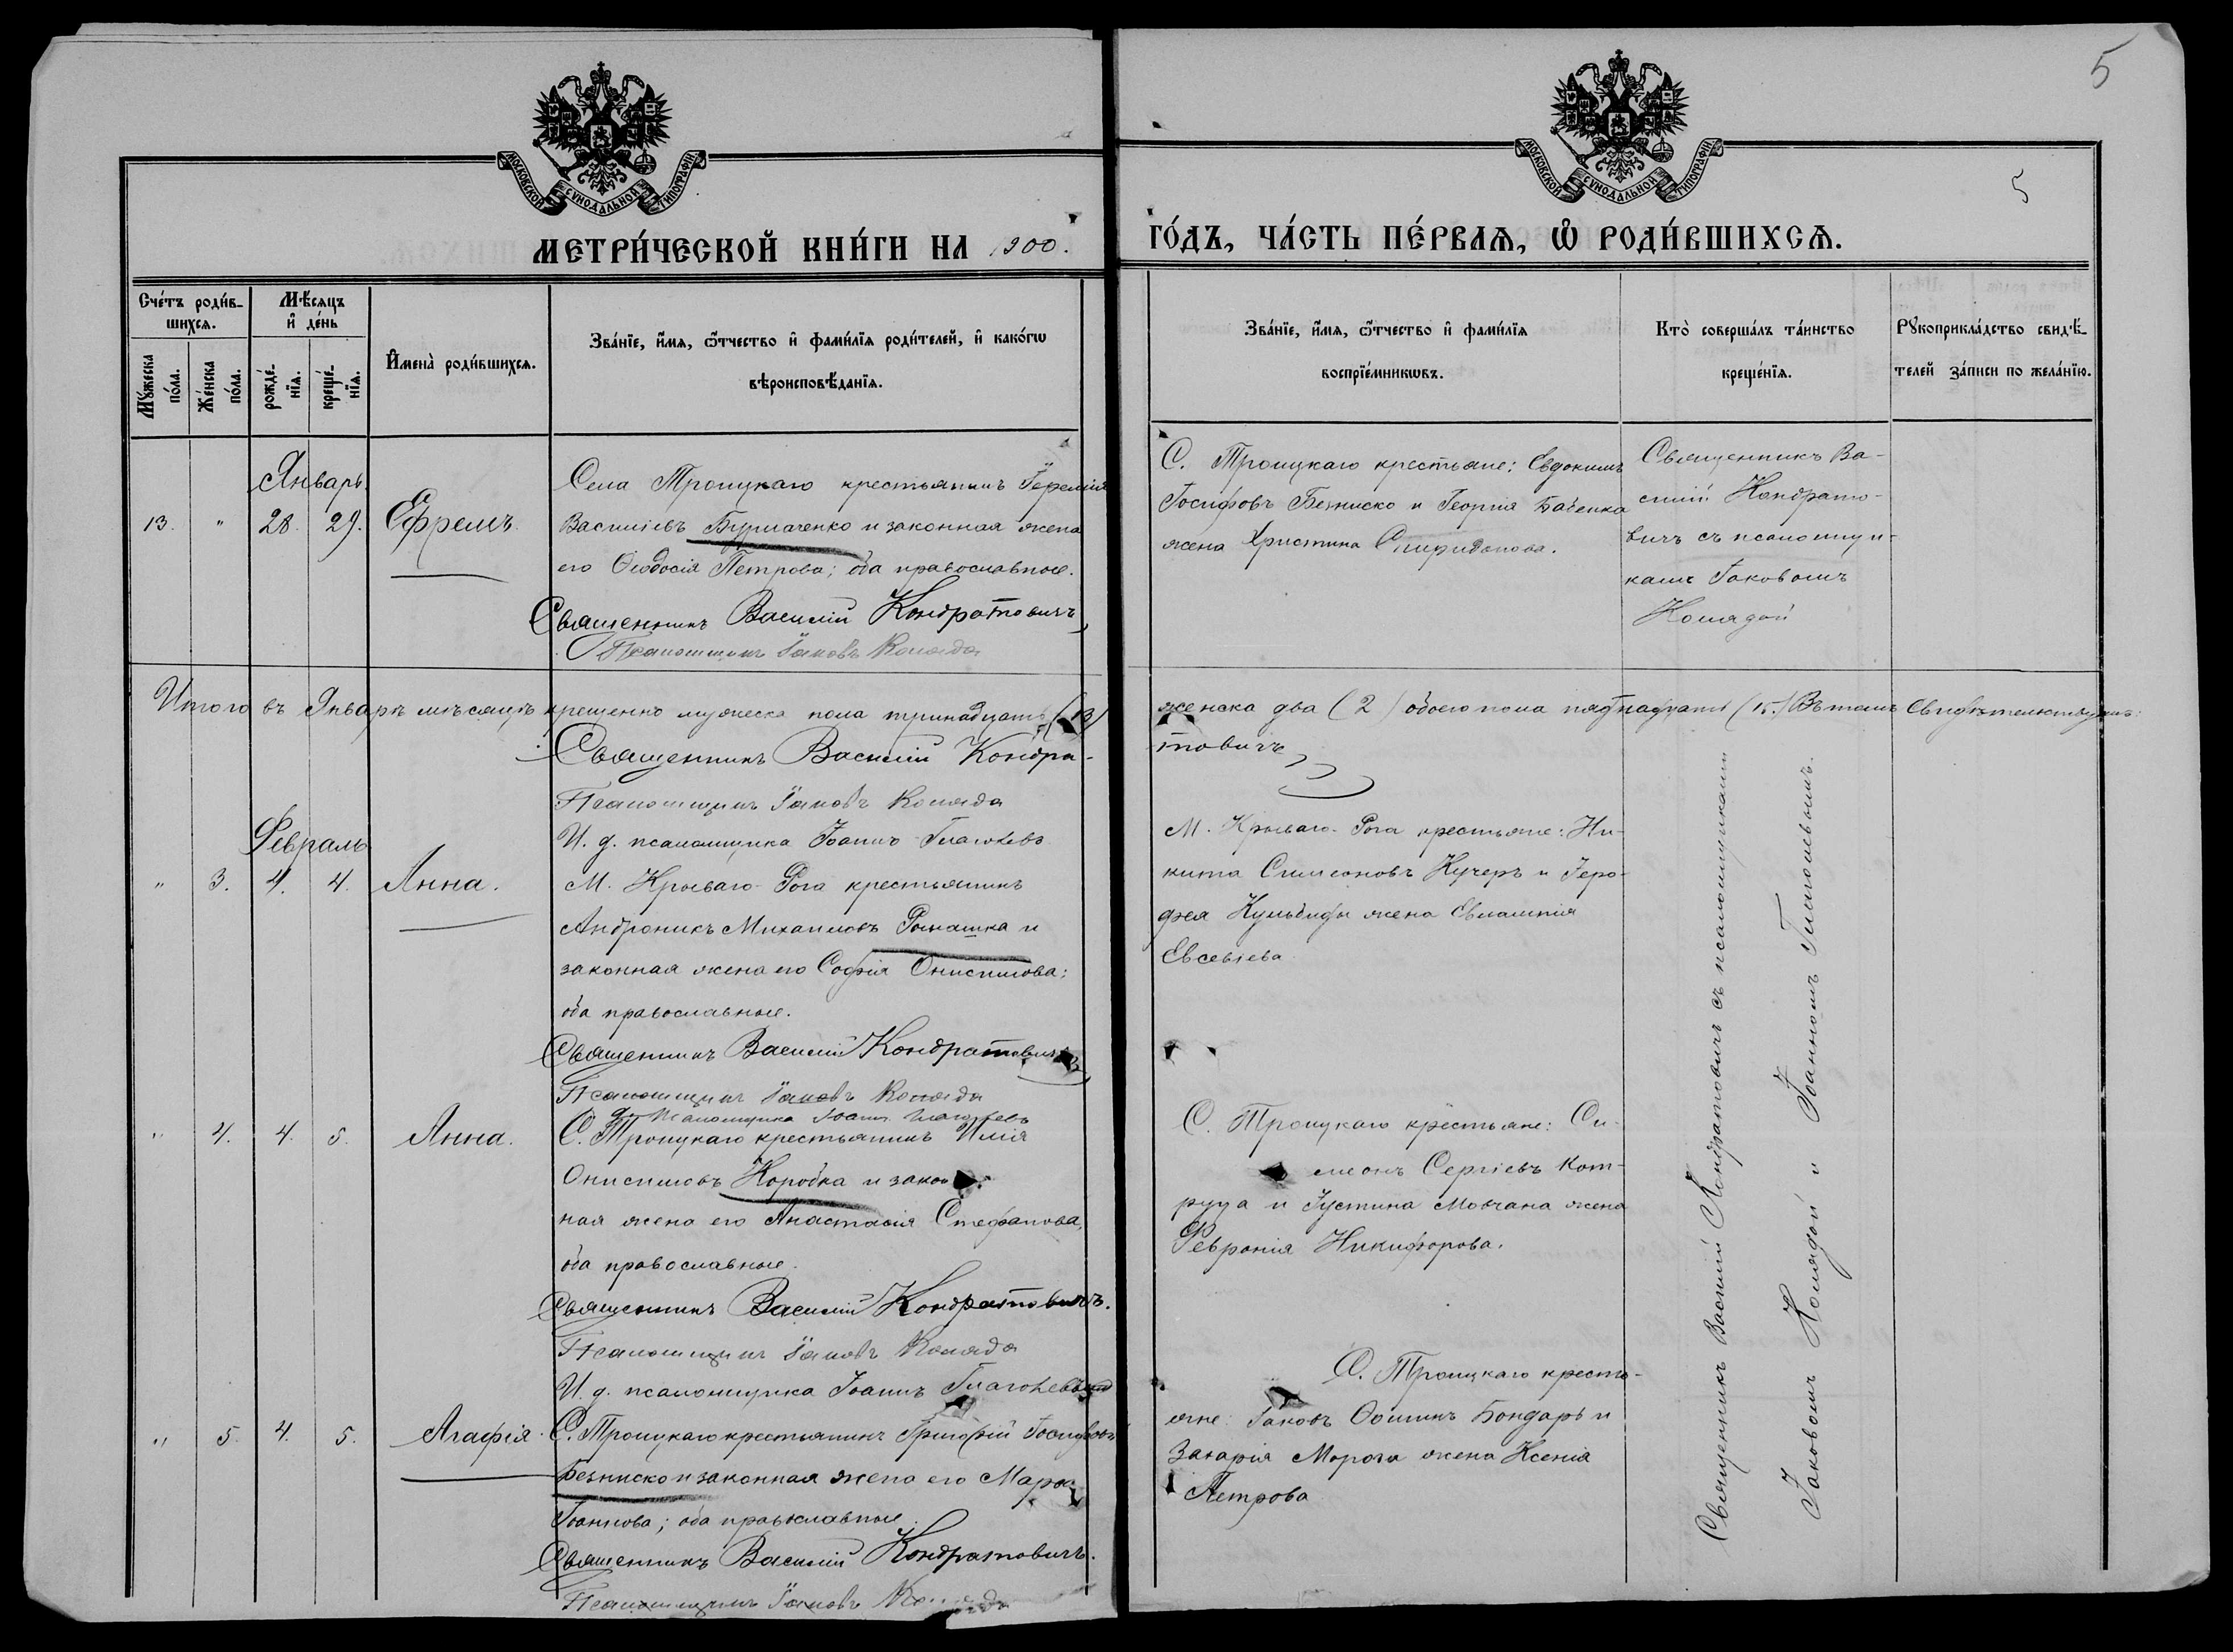 5
МОСКОВСКОЙ СѴНОДАЛЬНОЙ ТИПОГРАФІИ
МОСКОВСКОЙ СѴНОДАЛЬНОЙ ТИПОГРАФІИ
5
МЕТРИ́ЧЕСКОЙ КНИ́ГИ НА 1900.
ГО́ДЪ, ЧА́СТЬ ПЕ́РВАѦ, Ѽ РОДИ́ВШИХСѦ.
Сче́тъ роди́в-
шихсѧ.
Мꙋ́жеска
по́ла.
Же́нска
по́ла.
Мѣ́сѧцъ
и҆ де́нь
рожде́-
нїѧ.
креще́-
нїѧ.
И҆мена̀ роди́вшихсѧ.
Зва́нїе, и҆́мѧ, ѻ҆́тчество и҆ фами́лїѧ роди́телей, и҆ како́гѡ
вѣроисповѣ́данїѧ.
Зва́нїе, и҆́мѧ, ѻ҆́тчество и҆ фами́лїѧ
воспрїе́мникѡвъ.
Кто̀ соверша́лъ та́инство
креще́нїѧ.
Рꙋкоприкла́дство свидѣ́-
телей за́писи по жела́нїю.
Январь.
13. " 28. 29. Ефремъ.
Села Троицкаго крестьянинъ Іеремія
Василіевъ Бурлаченко и законная жена
его Ѳеодосія Петрова; оба православные.
Священникъ Василій Кондратовичъ
Псаломщикъ Іаковъ Коляда
С. Троицкаго крестьяне: Евдокимъ
Іосифовъ Безниско и Георгія Баченка
жена Христина Спиридонова.
Священникъ Ва-
силій Кондрато-
вичъ съ псаломщи-
комъ Іаковомъ
Колядой
Итого въ Январѣ мѣсяцѣ крещенно мужеска пола тринадцать (13)
женска два (2) обоего пола пятнадцать (15.) Въ томъ свидѣтельствуемъ:
Священникъ Василій Кондра-
товичъ
Псаломщикъ Іаковъ Коляда
И. д. псаломщика Іоаннъ Глаголевъ
Февраль
" 3. 4. 4. Анна.
М. Криваго-Рога крестьянинъ
Андроникъ Михаиловъ Ромашка и
законная жена его Софія Онисимова;
оба православные.
Священникъ Василій Кондратовичъ
Псаломщикъ Іаковъ Коляда
д. псаломщика Іоаннъ Глаголевъ
М. Криваго-Рога крестьяне: Ни-
кита Симеоновъ Кучеръ и Іеро-
фея жена Евлампія
Евсевіева
" 4. 4. 5. Анна.
С. Троицкаго крестьянинъ Илія
Онисимовъ Коробка и закон
ная жена его Анастасія Стефанова,
оба православные.
Священникъ Василій Кондратовичъ.
Псаломщикъ Іаковъ Коляда
И. д. псаломщика Іоаннъ Глаголевъ
С. Троицкаго крестьяне: Си-
меонъ Сергіевъ Кот-
руца и Іустина Мовчана жена
Февронія Никифорова.
" 5. 4. 5. Агафія.
С. Троицкаго крестьянинъ Григорій Іосифовъ
Безниско и законная жена его Марѳа
Іоаннова; оба православные.
Священникъ Василій Кондратовичъ.
Псаломщикъ Іаковъ Коляда
С. Троицкаго кресть-
яне: Іаковъ Ѳоминъ Бондарь и
Захарія Мороза жена Ксенія
Петрова
Священникъ Василій Кондратовичъ съ псаломщиками
Іаковомъ Колядой и Іоанномъ Глаголевымъ.